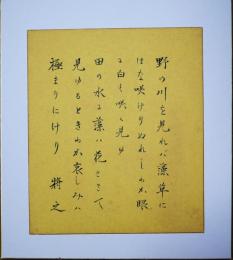 野の川を見れバ藻草に
はな咲けりぬれしわが眼
に白く咲く見ゆ
田の水に藻ハ花さきて
見ゆるときわが哀しみハ
極まりにけり 将之